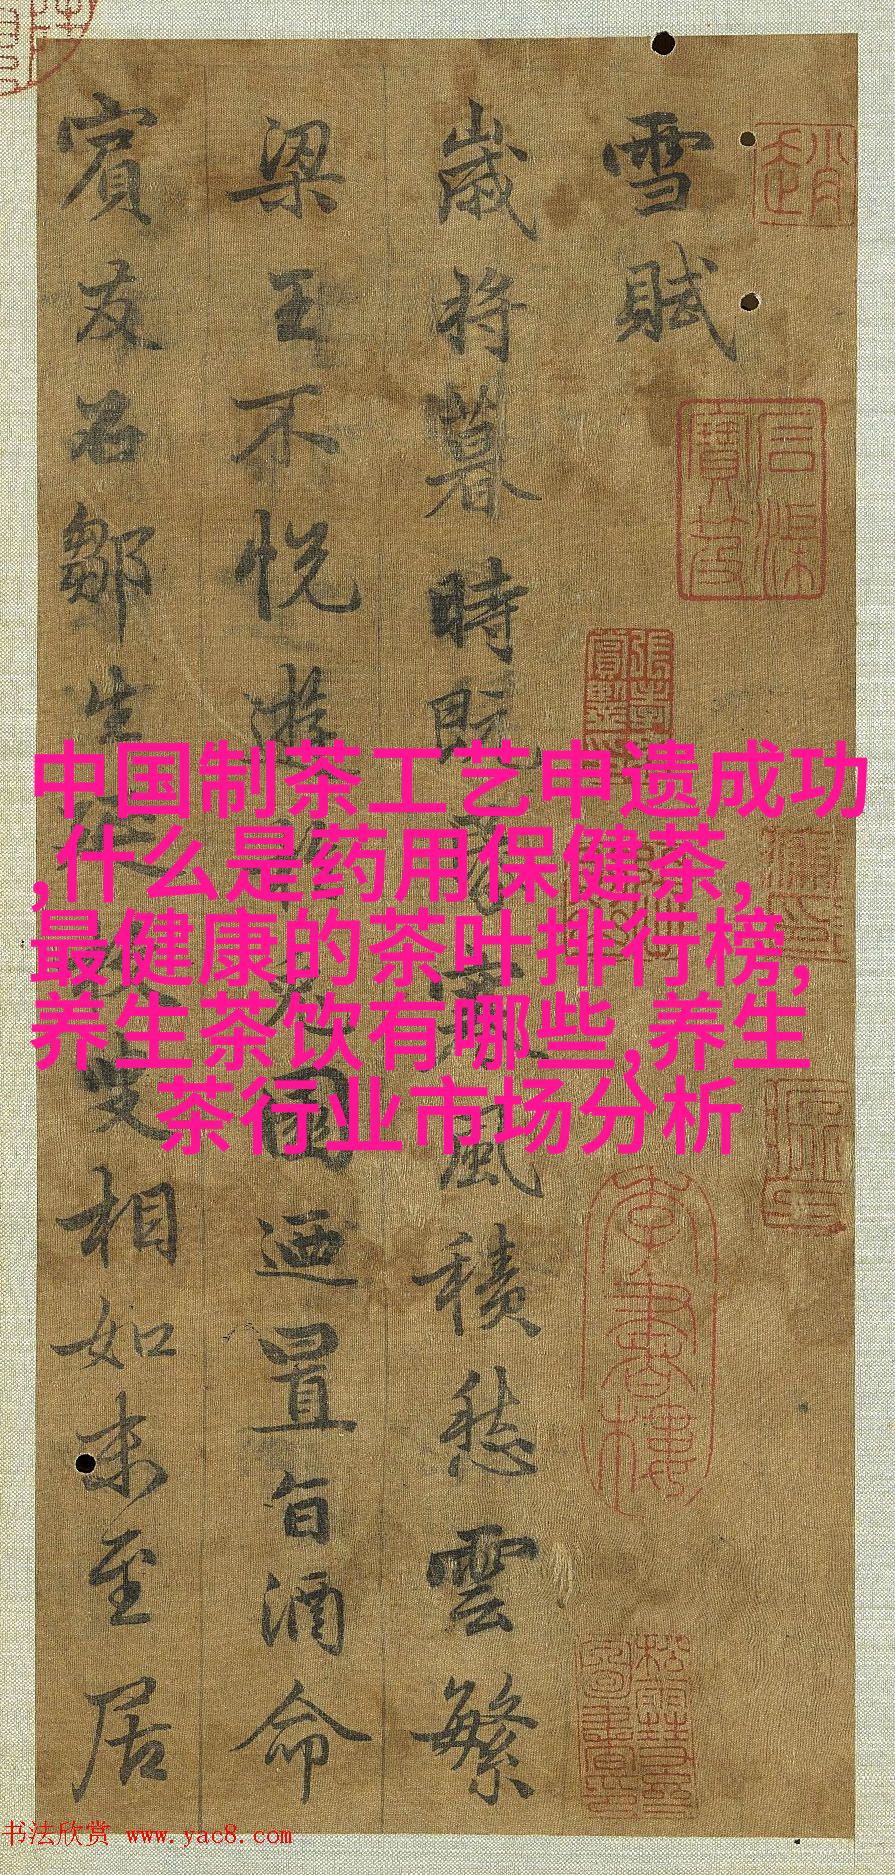 雪賦
歲將暮時既昏寒風積愁雲繁
梁王不悅遊於兔園迺置旨酒命
賓友召鄒生延枚叟相如末至居
中国制茶工艺申遗成功
,什么是药用保健茶,
最健康的茶叶排行榜,
养生茶饮有哪些,养生
茶行业市场分析
书法欣赏 www.yac8.com